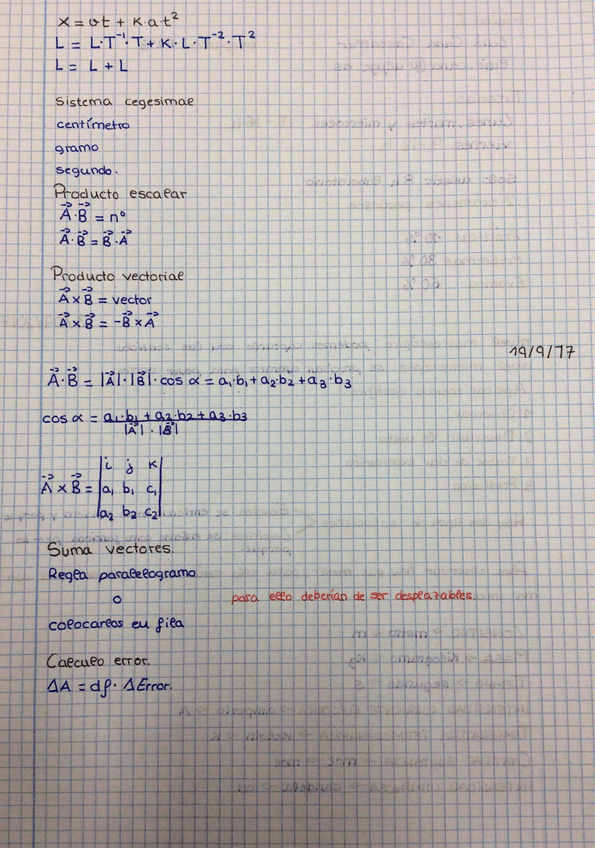 x = vt + K·a·t²
L = L·T⁻¹·T + K·L·T⁻²·T²
L = L + L
Sistema cegesimal
centímetro
gramo
segundo.
Producto escalar
A⃗·B⃗ = nº
A⃗·B⃗ = B⃗·A⃗
Producto vectorial
A⃗ x B⃗ = vector
A⃗ x B⃗ = -B⃗ x A⃗
19/9/17
A⃗·B⃗ = |A⃗|·|B⃗|·cos α = a₁·b₁ + a₂·b₂ + a₃·b₃
cos α = a₁·b₁ + a₂·b₂ + a₃·b₃
|A⃗|·|B⃗|
i j K
A⃗ x B⃗ = a₁ b₁ c₁
a₂ b₂ c₂
Suma vectores.
Regla paralelogramo
o para ello deberían de ser desplazables.
colocarlos en fila
Calculo error.
ΔA = df· ΔError.